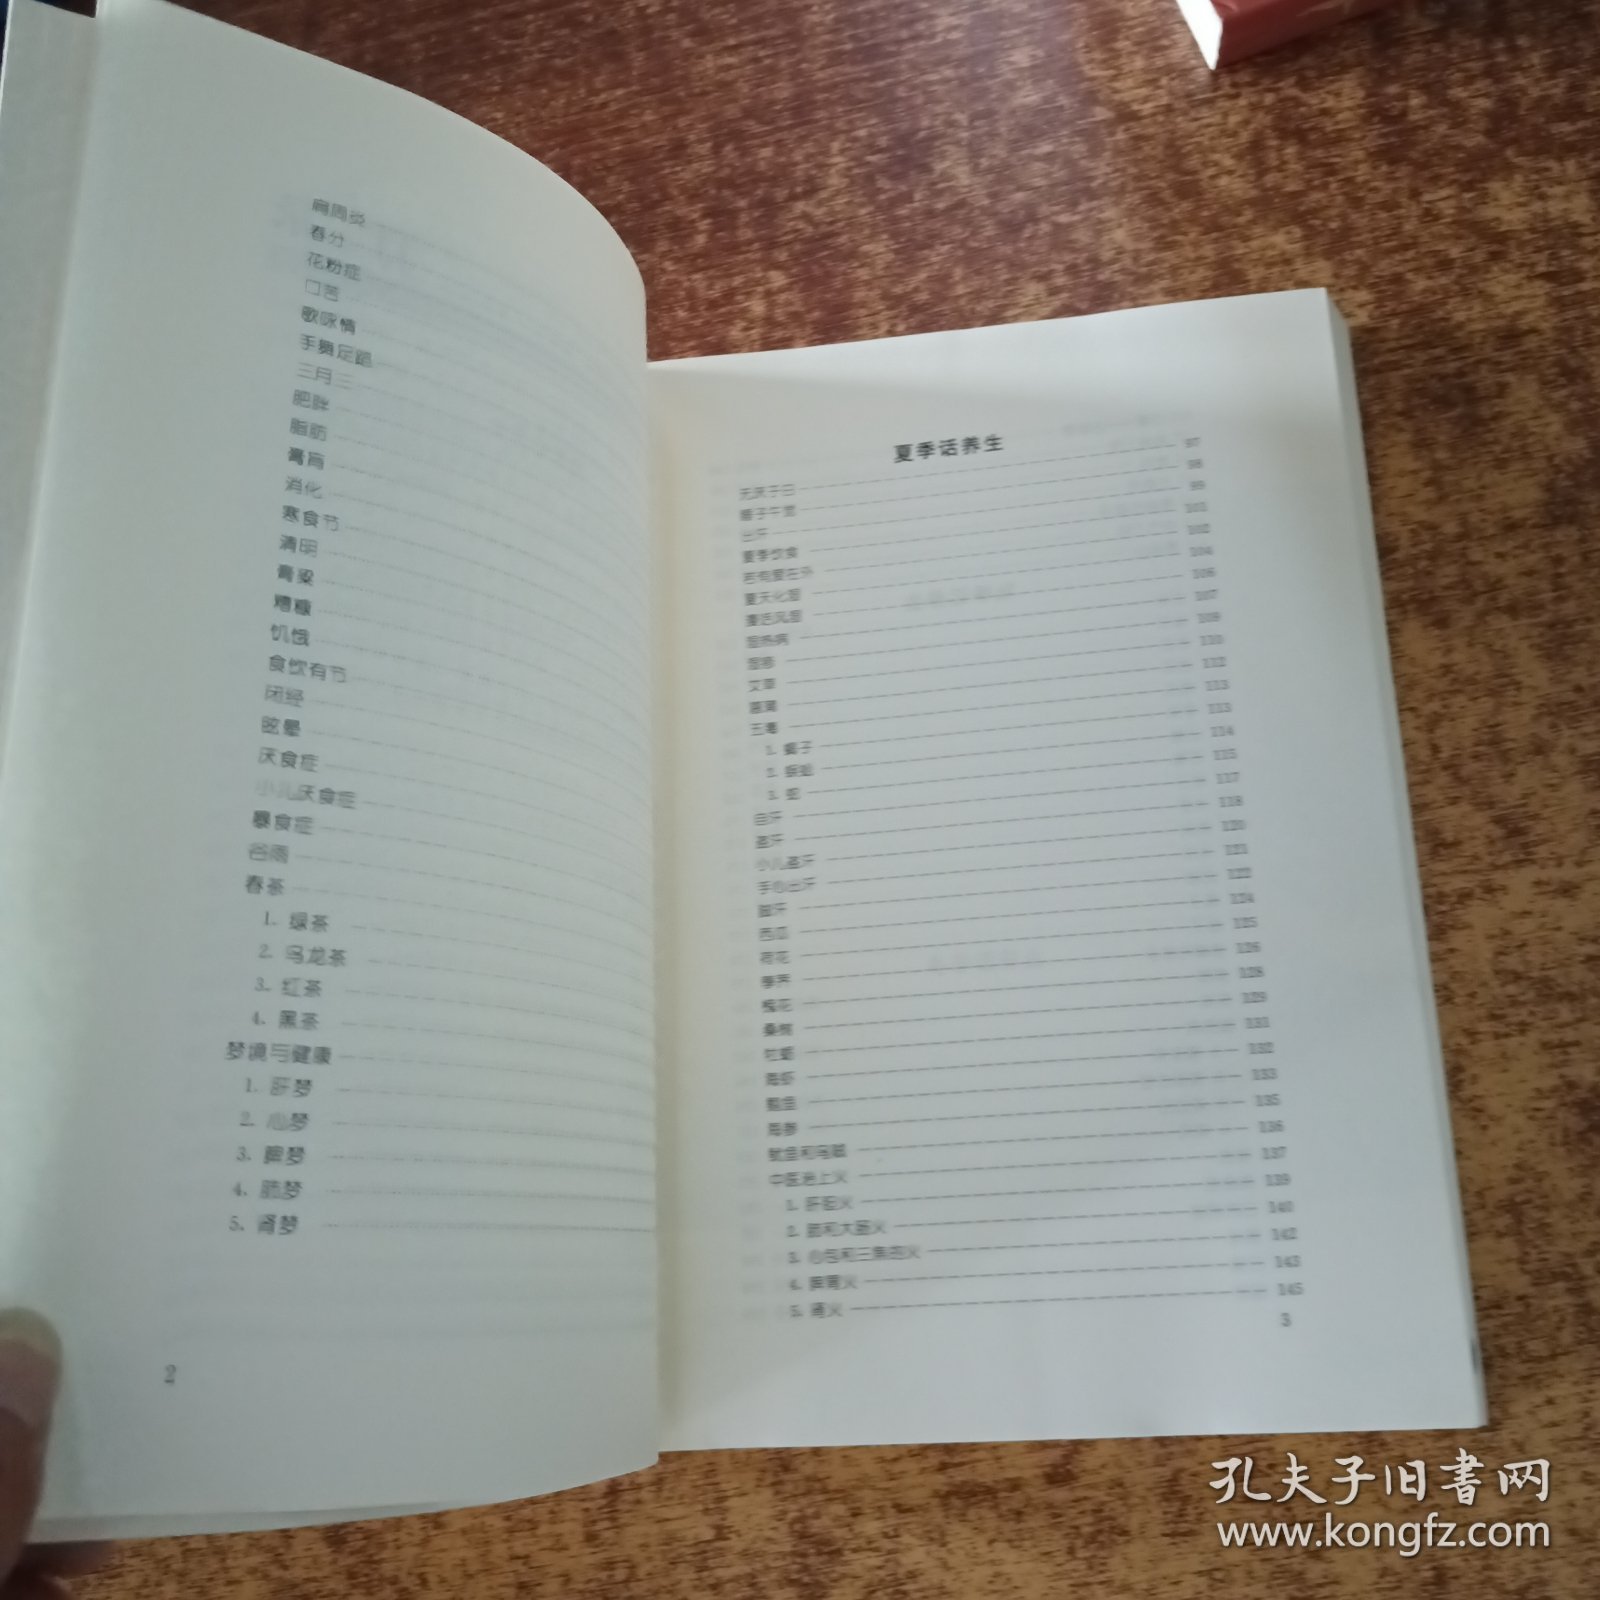 肩周炎
春分
花粉症
口苦
歌咏情
手舞足蹈
三月三
肥胖
脂肪
膏肓
消化
寒食节
清明
膏粱
糟糠
饥饿
食饮有节
闭经
眩晕
厌食症
小儿厌食症
暴食症
谷雨
春茶
1. 绿茶
2. 乌龙茶
3. 红茶
4. 黑茶
梦境与健康
1. 肝梦
2. 心梦
3. 脾梦
4. 肺梦
5. 肾梦
2
夏季话养生
无厌于日 97
睡子午觉 98
出汗 99
夏季饮食 101
若有爱在外 102
夏天化湿 104
106
湿热病 107
109
艾草 110
菖蒲 112
五毒 113
1. 蝎子 113
2. 蜈蚣 114
3. 蛇 115
自汗 117
盗汗 118
小儿盗汗 120
手心出汗 121
脚汗 122
西瓜 124
荷花 125
126
槐花 128
桑椹 129
牡蛎 131
海虾 132
133
海参 135
鱿鱼和乌贼 136
中医治上火 137
1. 肝胆火 139
2. 肺和大肠火 140
3. 心包和三焦的火 142
4. 脾胃火 143
5. 肾火 145
3
孔夫子旧书网
www.kongfz.com